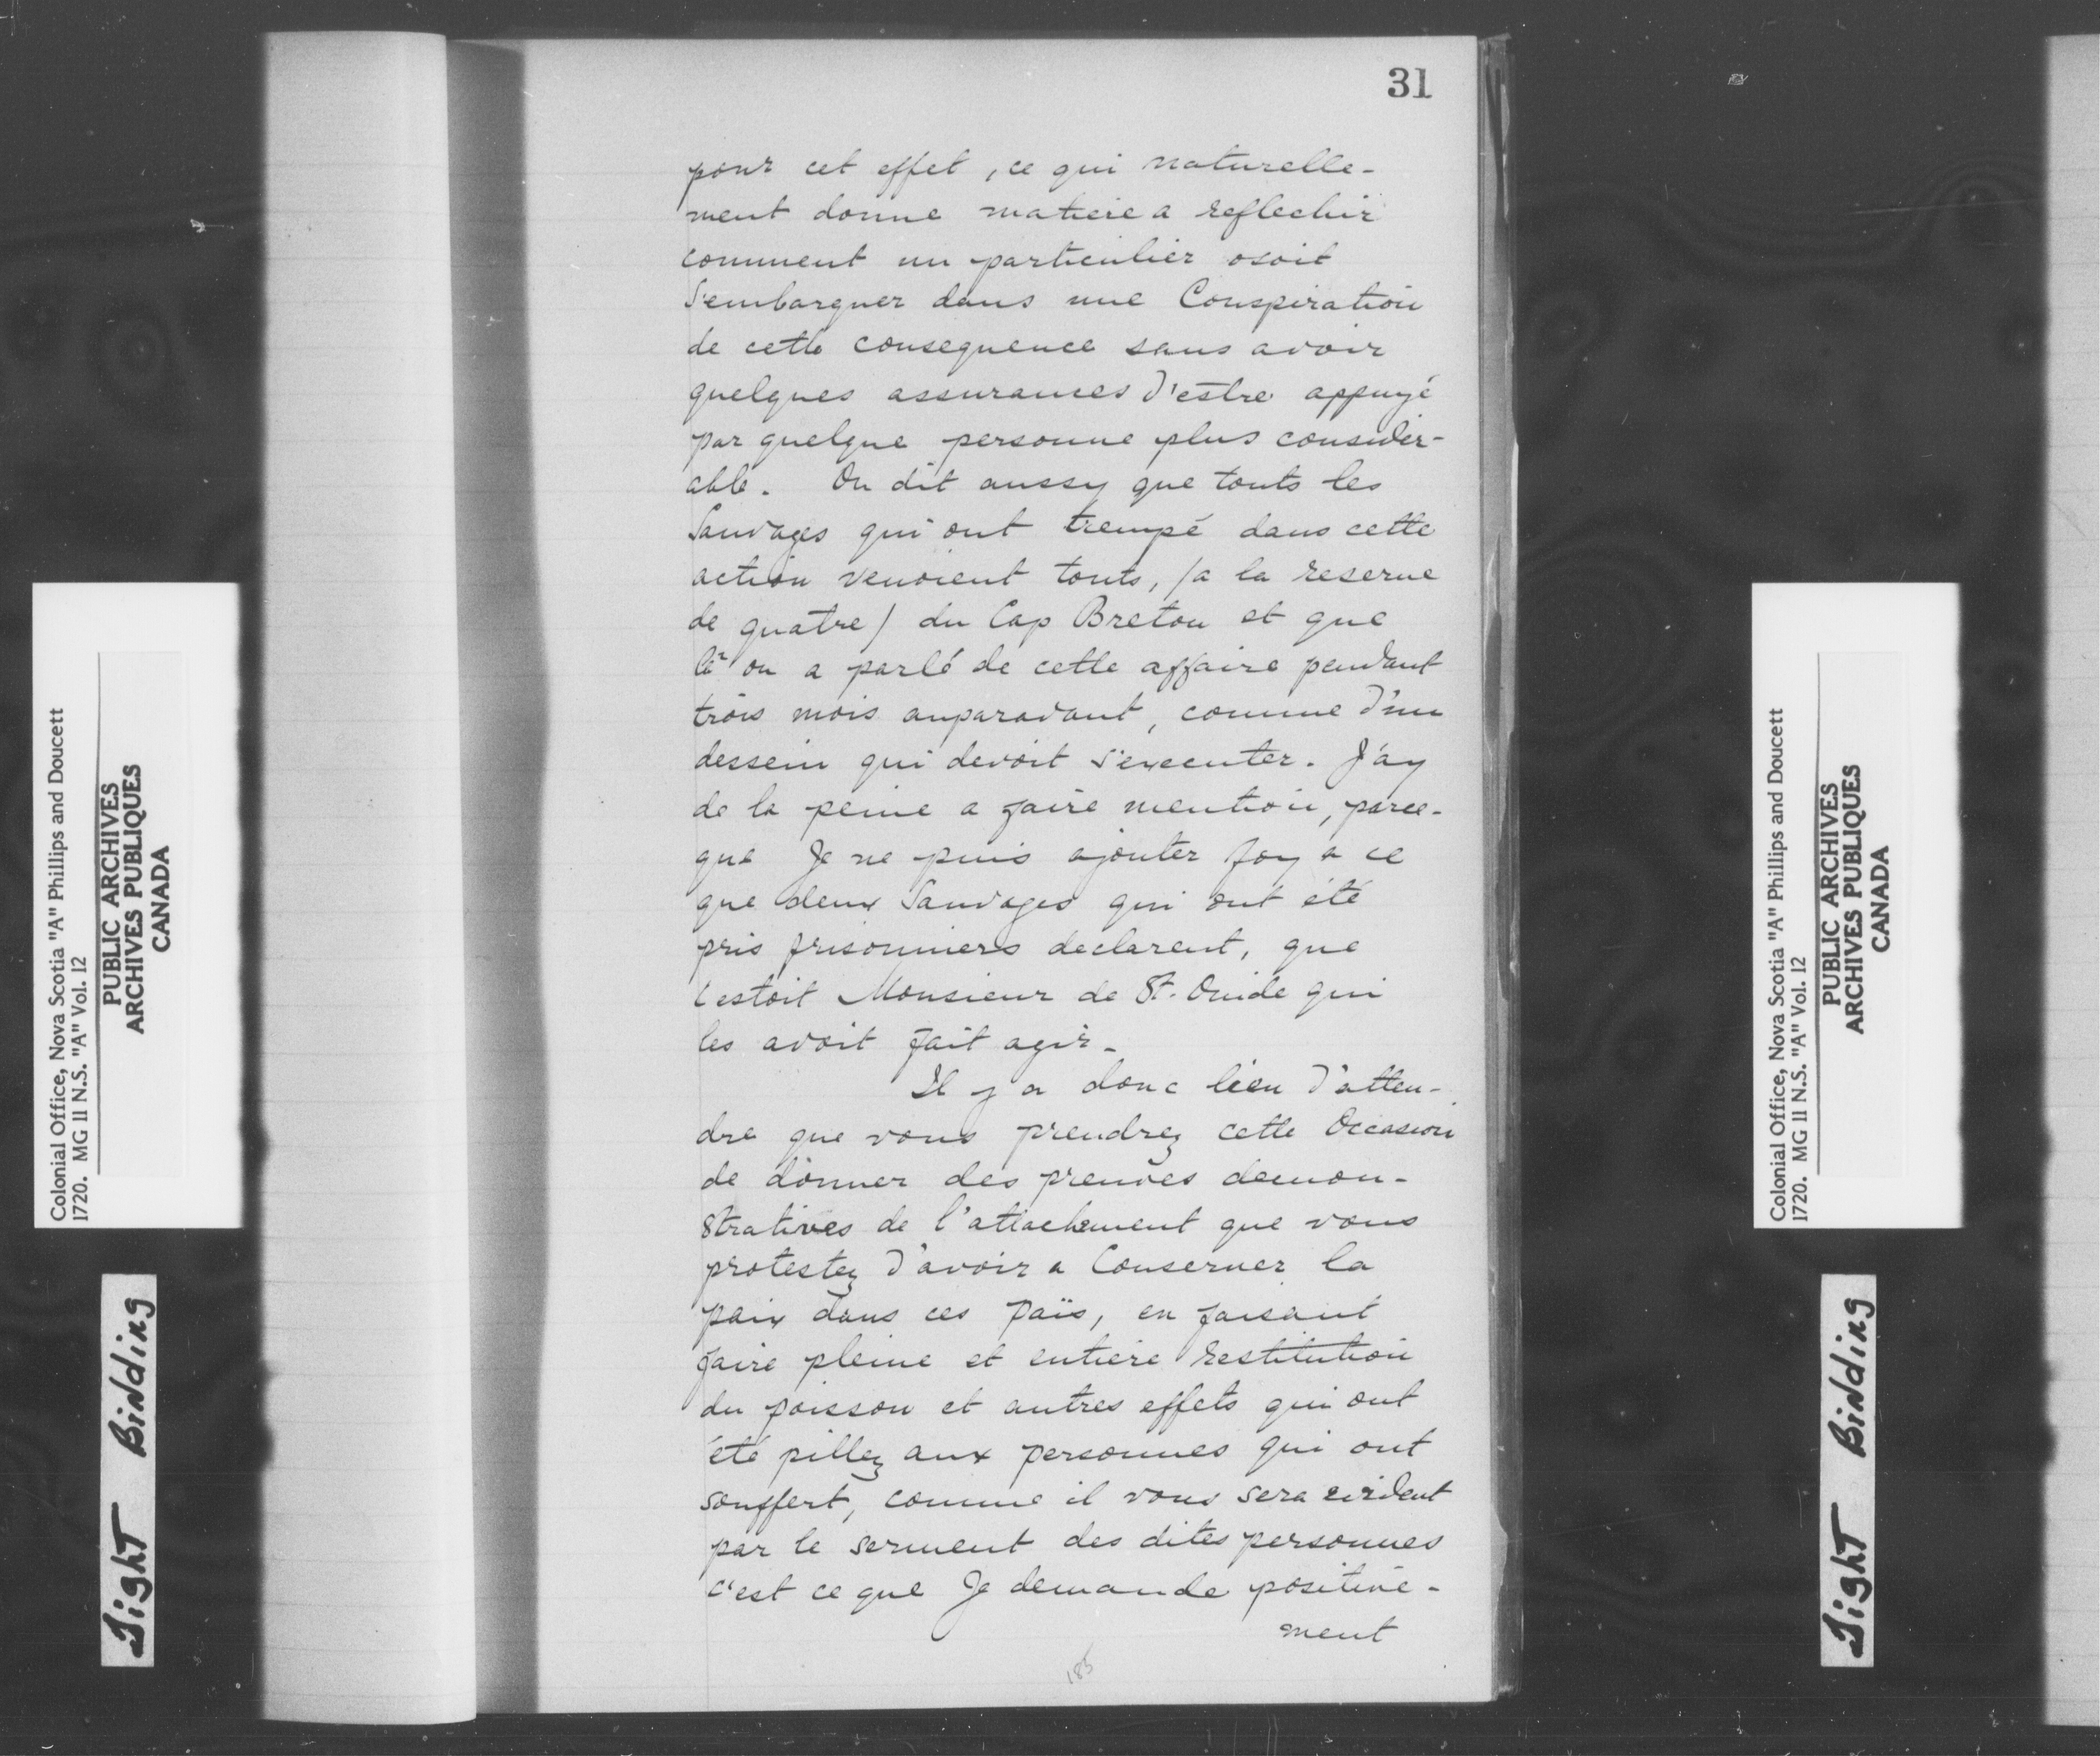 31
pour cet effet, ce qui naturelle-
ment donne matiere a reflechir
comment un particulier osoit
S'embarquer dans une Conspiration
de cette consequence sans avoir
quelques assurances d'estre appuyé
par quelque personne plus consider-
able. On dit aussy que touts les
Sauvages qui ont trempé dans cette
action venoient touts, /a la reserve
de quatre/ du Cap Breton et que
là on a parlé de cette affaire pendant
trois mois auparavant, comme d'un
dessein qui devoit s'executer. J'ay
de la peine a faire mention, parce-
que Je ne puis ajouter foy a ce
que deux Sauvages qui ont été
pris prisonniers declarent, que
c'estoit Monsieur de St. Ouide qui
les avoit fait agir-
Il y a donc lieu d'atten-
dre que vous prendrez cette Occasion
de donner des preuves demon-
stratives de l'attachement que vous
protestez d'avoir a Conserver la
paix dans ces païs, en faisant
faire pleine et entiere restitution
du poisson et autres effets qui ont
été pillez aux personnes qui ont
souffert, comme il vous sera evident
par le serment des dites personnes
c'est ce que Je demande positive-
ment
185
Colonial Office, Nova Scotia "A" Phillips and Doucett
1720. MG 11 N.S. "A" Vol. 12
PUBLIC ARCHIVES
ARCHIVES PUBLIQUES
CANADA
Tight Binding
Colonial Office, Nova Scotia "A" Phillips and Doucett
1720. MG 11 N.S. "A" Vol. 12
PUBLIC ARCHIVES
ARCHIVES PUBLIQUES
CANADA
Tight Binding